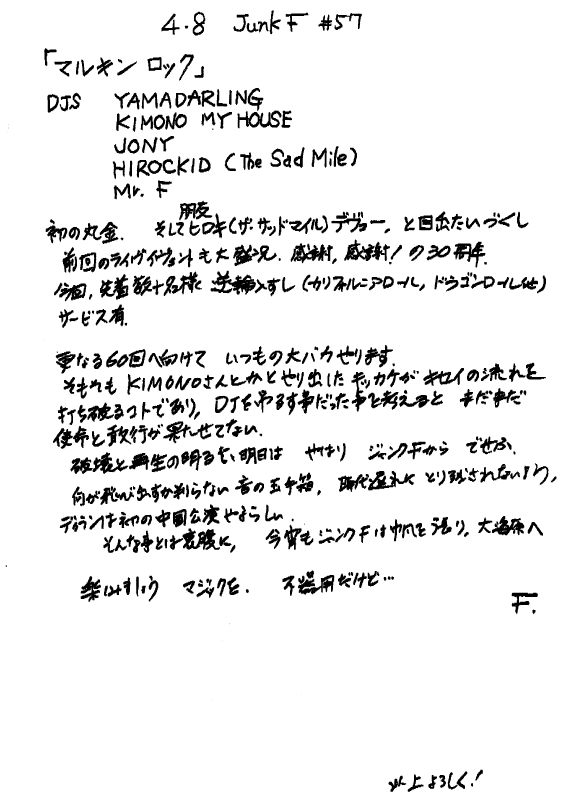 4.8 Junk F #57
「マルキン ロック」
DJS YAMADARLING
KIMONO MY HOUSE
JONY
HIROCKID (The Sad Mile)
Mr. F
朋友
初の丸金. そしてヒロキ(ザ・サッドマイル)デヴュー, と目出たいづくし
前回のライヴイヴェントも大盛況. 感謝, 感謝! の30周年.
今回, 先着数十名様に 逆輸入すし (カリフォルニアロール, ドラゴンロール他)
サービス有.
更なる60回へ向けて いつもの大バカやります.
そもそも KIMONOさんとかとやり出したキッカケが キセイの流れを
打ち破るコトであり, DJを 事だった事を考えると まだまだ
使命と敢行が果たせてない.
破壊と再生の明るを, 明日は やはり ジャンクFから でせう.
何が飛び出すか判らない 音の玉手箱, 時代遅れに とり残されないよう,
ディランは初の中国公演やるらしい.
そんな事とは裏腹に, 今宵も ジャンクFは帆を張り, 大海原へ
楽しみましょう マジックを. 不器用だけど…
F.
以上よろしく!